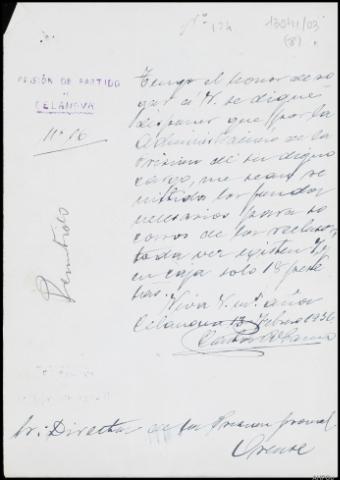 Nº 124
13041/03
(8)
PRISIÓN DE PARTIDO
CELANOVA
Nº 86
Tengo el honor de ro
gar a V. se digne
disponer que por la
Administración de la
Prisión de su digno
cargo, me sean re
mitidos los fondos
necesarios para so
corros de los reclusos
toda vez existen
en caja solo 18 pese
tas.
Viva V. m.s años
Celanova 13 Febrero 1936
Remitido
Sr. Director de la Prision provincial
Orense